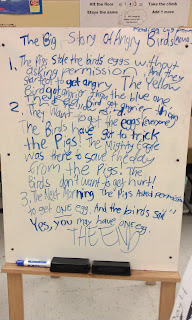 Hit the floor
Take the climb
Stays the same
Add 4 more
The Big Story of Angry Birds
1. The Pigs stole the birds eggs without
asking permission. And they
started to get angry. The Yellow
Bird got angrier than the blue one
2. The Red bird got angrier
They want to get the eggs (everyone)
The Birds have got to trick
the Pigs! The Mighty Eagle
was there to save the day
from the Pigs! The
Birds don't want to get hurt!
3. The Next Morning The Pigs Asked permission
to get one egg. And the birds said
Yes, you may have one egg.
THE END